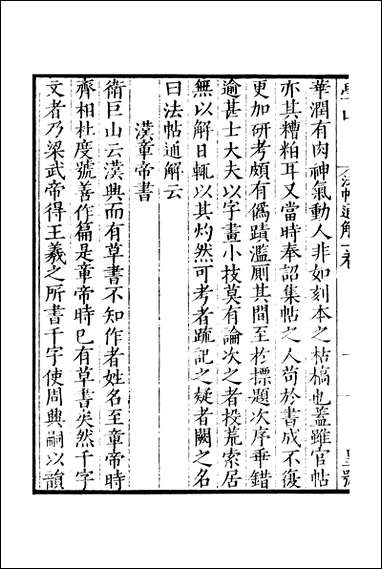 華潤有肉神氣動人非如刻本之枯槁也蓋雖官帖
亦其糟粕耳又當時奉詔集帖之人苟於書成不復
更加研考頗有偽蹟濫厠其間至於標題次序乖錯
逾甚士大夫以字畫小技莫有論次之者投荒索居
無以解日輒以其灼然可考者疏記之疑者闕之名
曰法帖通解云
漢章帝書
衛巨山云漢興而有草書不知作者姓名至章帝時
齊相杜度號善作篇是章帝時已有草書矣然千字
文者乃梁武帝得王羲之所書千字使周興嗣以韻